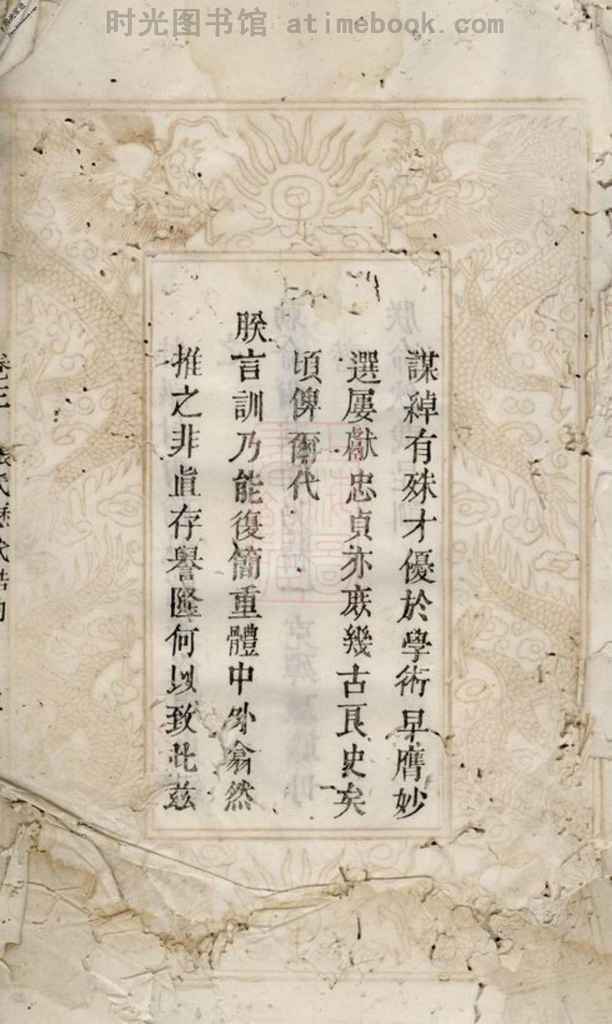 时光图书馆 atimebook.com
謀綽有殊才優於學術早膺妙
選屢獻忠貞亦庻幾古良史矣
頃俾爾代
朕言訓乃能復簡重體中外翕然
推之非眞存譽隆何以致此茲